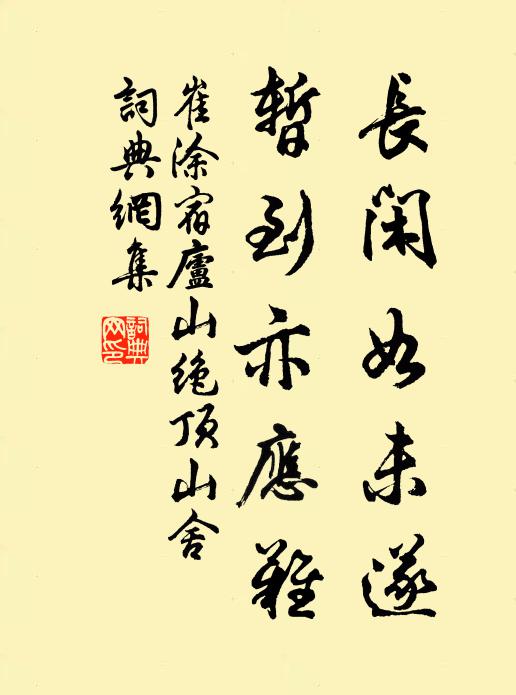 長閑如未遂
暫到亦應難
崔涂宿廬山絶頂山舍
詞典網集
詞典
网印